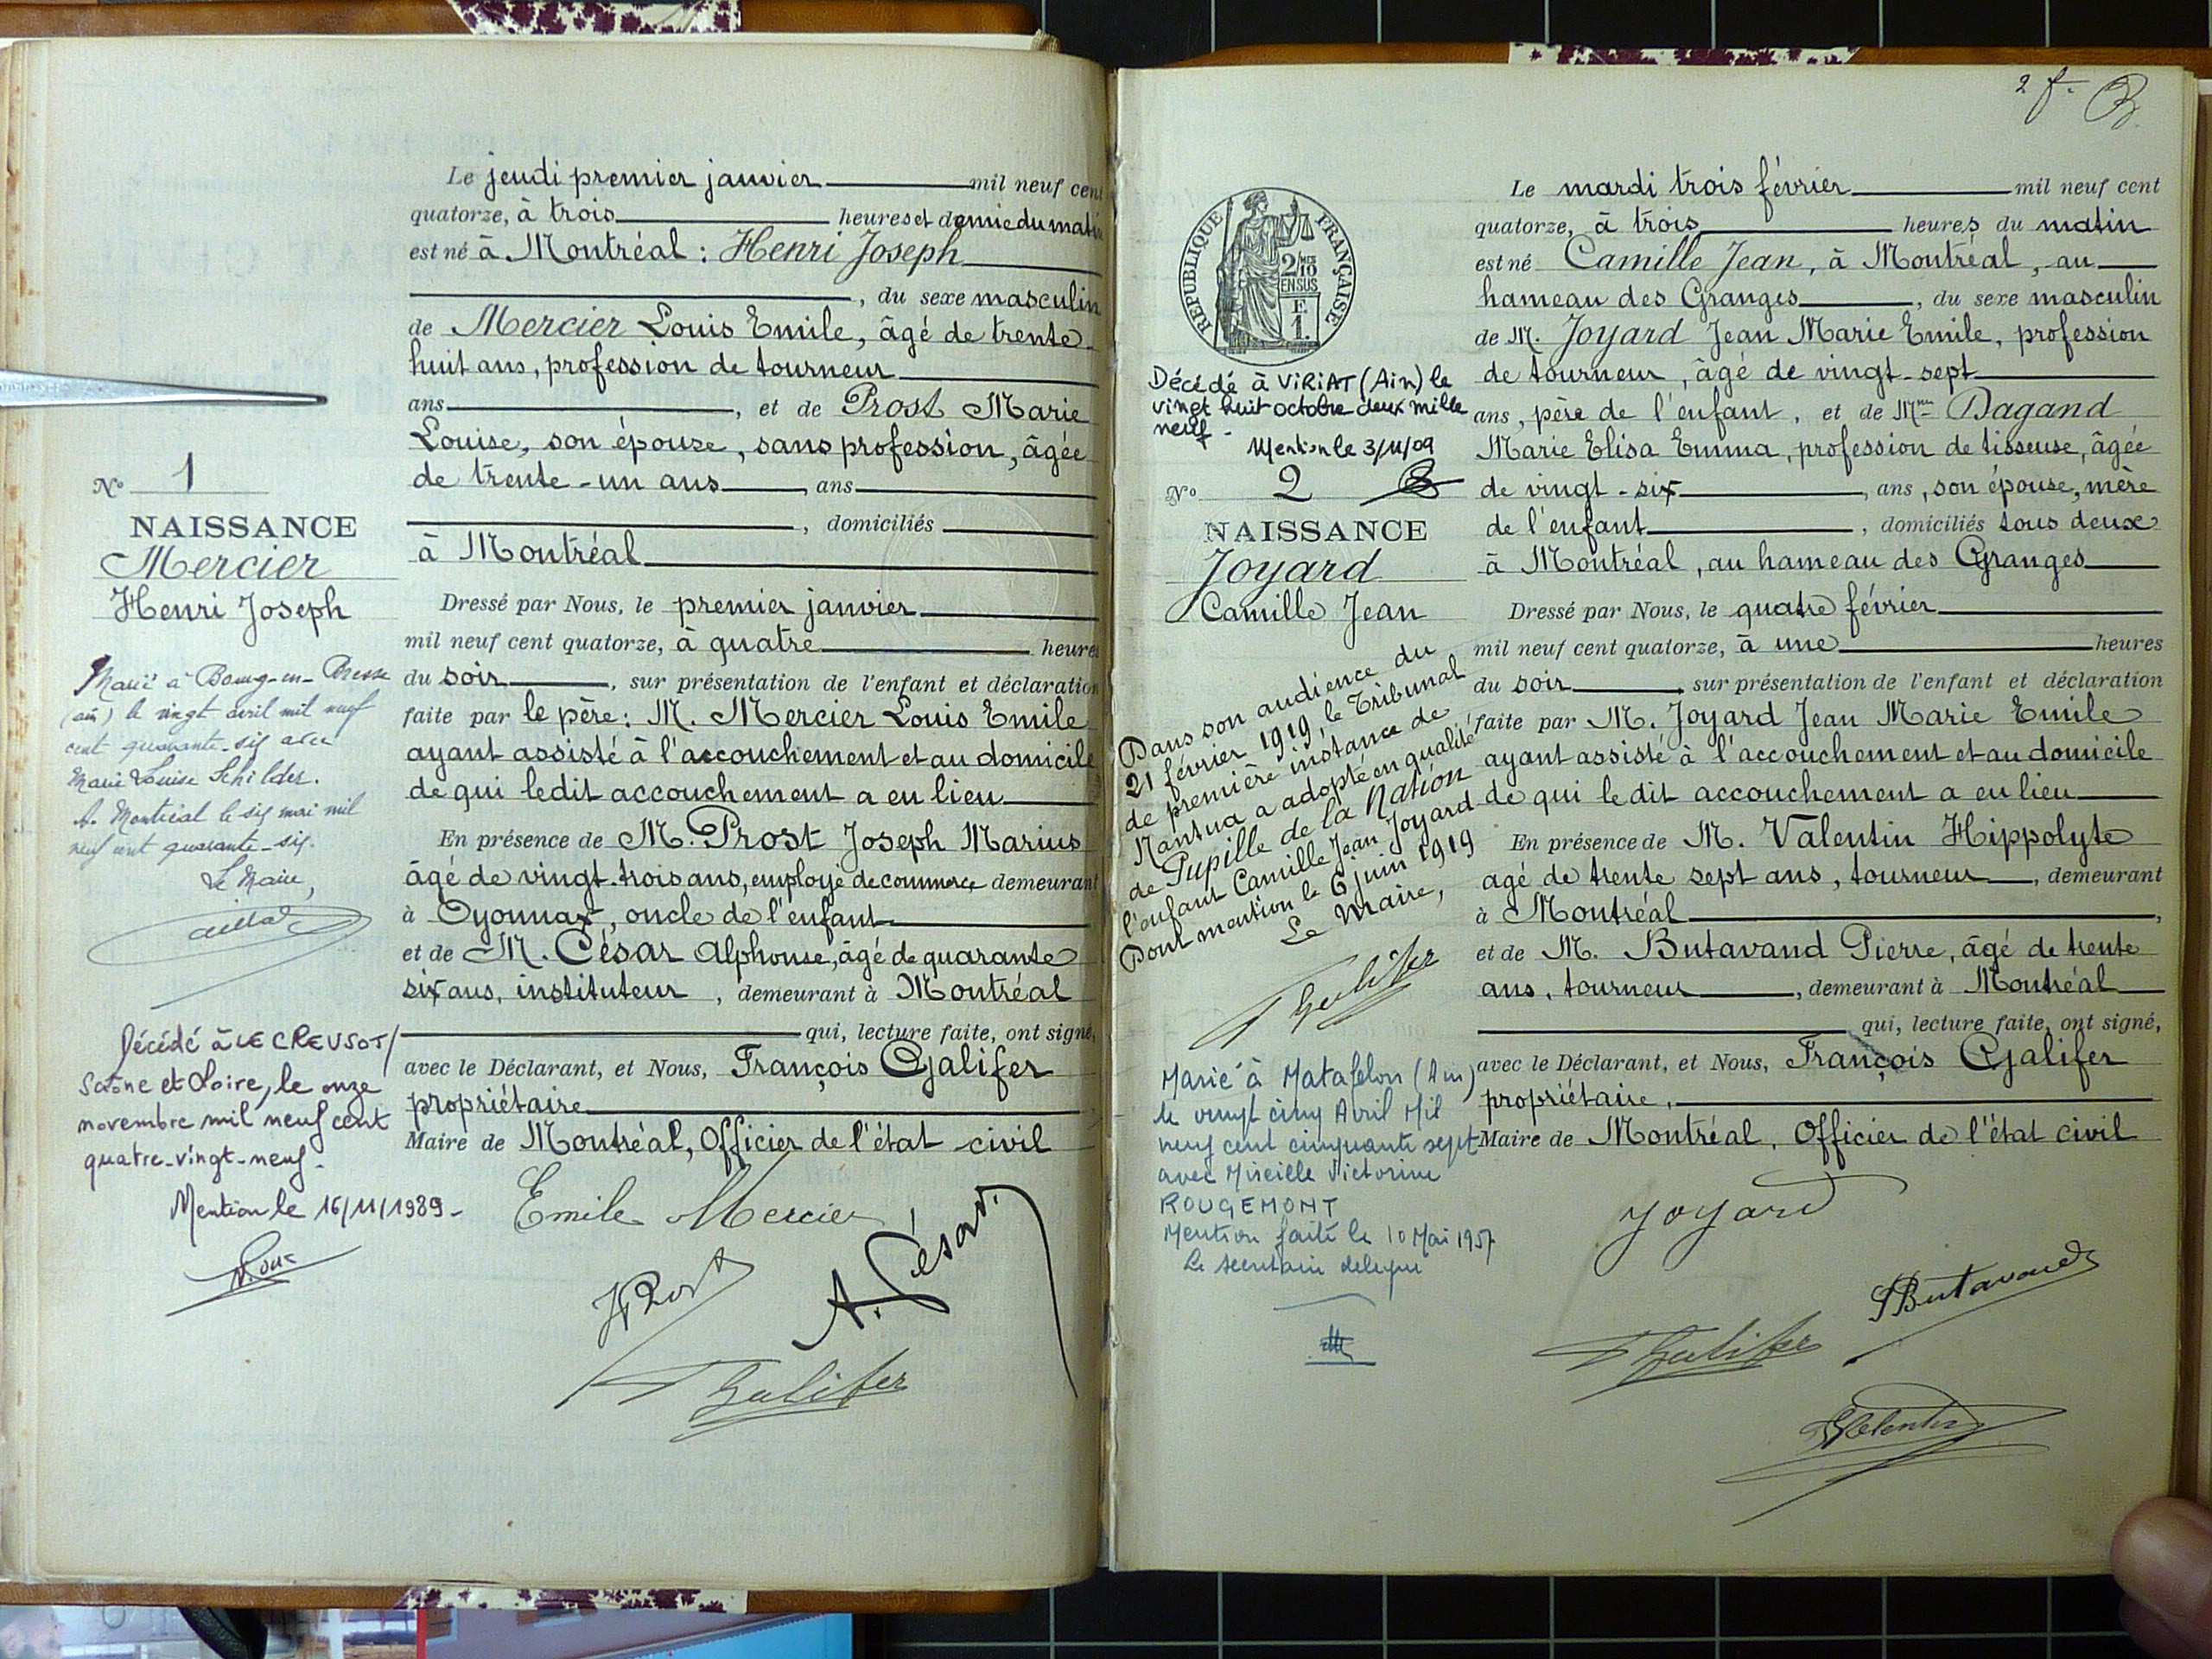 Le jeudi premier janvier mil neuf cent
quatorze, à trois heures et demie du matin
est né à Montréal : Henri Joseph
, du sexe masculin
de Mercier Louis Emile, âgé de trente-
huit ans, profession de tourneur
ans, et de Prost Marie
Louise, son épouse, sans profession, âgée
de trente-un ans, ans
, domiciliés
à Montréal
Dressé par Nous, le premier janvier
mil neuf cent quatorze, à quatre heures
du soir, sur présentation de l'enfant et déclaration
faite par le père: M. Mercier Louis Emile
ayant assisté à l'accouchement et au domicile
de qui ledit accouchement a eu lieu
En présence de M. Prost Joseph Marius
âgé de vingt-trois ans, employé de commerce demeurant
à Oyonnax, oncle de l'enfant
et de M. César Alphonse, âgé de quarante
six ans, instituteur, demeurant à Montréal
qui, lecture faite, ont signé,
avec le Déclarant, et Nous, François Galifer
propriétaire
Maire de Montréal, Officier de l'état civil
Emile Mercier
JProst
A. César
Galifer
No 1
NAISSANCE
Mercier
Henri Joseph
Marié à Bourg-en-Bresse
(ain) le vingt avril mil neuf
cent quarante-six avec
Marie Louise Schilder.
A Montréal le six mai mil
neuf cent quarante-six.
Le Maire,
Décédé à LE CREUSOT/
Saône et Loire, le onze
novembre mil neuf cent
quatre-vingt-neuf.
Mention le 16/11/1989-
2 f.
REPUBLIQUE FRANÇAISE
2/10
EN SUS
F.
1.
Décédé à VIRIAT (Ain) le
vingt huit octobre deux mille
neuf-
Mention le 3/11/09
No 2
NAISSANCE
Joyard
Camille Jean
Dans son audience du
21 février 1919, le Tribunal
de première instance de
Nantua a adopté en qualité
de Pupille de la Nation
l'enfant Camille Jean Joyard
Dont mention le 6 juin 1919
Le Maire,
Galifer
Marié à Matafelon (Ain)
le vingt cinq Avril Mil
neuf cent cinquante sept
avec Mireille Victorine
ROUGEMONT
Mention faite le 10 Mai 1957
Le secrétaire délégué
Le mardi trois février mil neuf cent
quatorze, à trois heures du matin
est né Camille Jean, à Montréal, au
hameau des Granges, du sexe masculin
de M. Joyard Jean Marie Emile, profession
de tourneur, âgé de vingt-sept
ans, père de l'enfant, et de Mme Dagand
Marie Elisa Emma, profession de tisseuse, âgée
de vingt-six, ans, son épouse, mère
de l'enfant, domiciliés tous deux
à Montréal, au hameau des Granges
Dressé par Nous, le quatre février
mil neuf cent quatorze, à une heures
du soir, sur présentation de l'enfant et déclaration
faite par M. Joyard Jean Marie Emile
ayant assisté à l'accouchement et au domicile
de qui le dit accouchement a eu lieu
En présence de M. Valentin Hippolyte
agé de trente sept ans, tourneur, demeurant
à Montréal,
et de M. Butavand Pierre, âgé de trente
ans, tourneur, demeurant à Montréal
qui, lecture faite, ont signé,
avec le Déclarant, et Nous, François Galifer
propriétaire,
Maire de Montréal, Officier de l'état civil
Joyard
PButavand
Galifer
HValentin